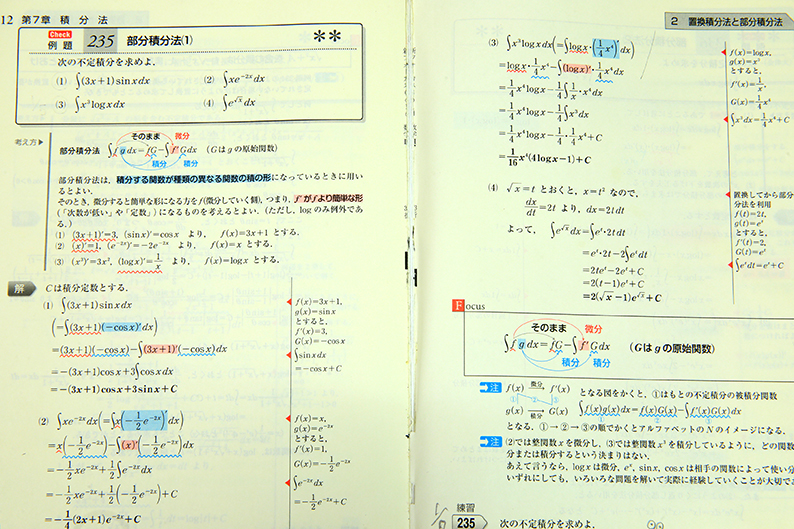 12 第7章 積分法
Check
例題 235 部分積分法(1) **
次の不定積分を求めよ.
(1) ∫(3x+1)sinxdx (2) ∫xe^{-2x}dx
(3) ∫x³logxdx (4) ∫e^{√x}dx
考え方
そのまま 微分
部分積分法 ∫fgdx=fG−∫f'Gdx (Gはgの原始関数)
積分 積分
部分積分法は,積分する関数が種類の異なる関数の積の形になっているときに用い
るとよい.
そのとき,微分すると簡単な形になる方をf(微分していく側),つまり,f'がfより簡単な形
(「次数が低い」や「定数」)になるものを考えるとよい.(ただし,logのみ例外であ
る.)
(1) (3x+1)'=3, (sinx)'=cosx より, f(x)=3x+1 とする.
(2) (x)'=1, (e^{-2x})'=−2e^{-2x} より, f(x)=x とする.
(3) (x³)'=3x², (logx)'=1/x より, f(x)=logx とする.
解 Cは積分定数とする.
(1) ∫(3x+1)sinxdx
(=∫(3x+1)(−cosx)'dx)
=(3x+1)(−cosx)−∫(3x+1)'(−cosx)dx
=−(3x+1)cosx+3∫cosxdx
=−(3x+1)cosx+3sinx+C
f(x)=3x+1,
g(x)=sinx
とすると,
f'(x)=3,
G(x)=−cosx
∫sinxdx
=−cosx+C
(2) ∫xe^{-2x}dx(=∫x(−1/2 e^{-2x})'dx)
=x(−1/2 e^{-2x})−∫(x)'(−1/2 e^{-2x})dx
=−1/2 xe^{-2x}+1/2∫e^{-2x}dx
=−1/2 xe^{-2x}+1/2(−1/2 e^{-2x})+C
=−1/4(2x+1)e^{-2x}+C
f(x)=x,
g(x)=e^{-2x}
とすると,
f'(x)=1,
G(x)=−1/2 e^{-2x}
∫e^{-2x}dx
=−1/2 e^{-2x}+C
2 置換積分法と部分積分法
(3) ∫x³logxdx(=∫logx·(1/4 x⁴)'dx)
=logx·1/4 x⁴−∫(logx)'·1/4 x⁴dx
=1/4 x⁴logx−1/4∫1/x·x⁴dx
=1/4 x⁴logx−1/4∫x³dx
=1/4 x⁴logx−1/4·1/4 x⁴+C
=1/16 x⁴(4logx−1)+C
f(x)=logx,
g(x)=x³
とすると,
f'(x)=1/x,
G(x)=1/4 x⁴
∫x³dx=1/4 x⁴+C
(4) √x=t とおくと, x=t² なので,
dx/dt=2t より, dx=2tdt
よって, ∫e^{√x}dx=∫e^t·2tdt
=e^t·2t−2∫e^tdt
=2te^t−2e^t+C
=2(t−1)e^t+C
=2(√x−1)e^{√x}+C
置換してから部分
分法を利用
f(t)=2t,
g(t)=e^t
とすると,
f'(t)=2,
G(t)=e^t
∫e^tdt=e^t+C
Focus
そのまま 微分
∫fgdx=fG−∫f'Gdx (Gはgの原始関数)
積分 積分
注 f(x) 微分→ f'(x) となる図をかくと, ①はもとの不定積分の被積分関数
① ② ③
g(x) →積分 G(x) ∫f(x)g(x)dx=f(x)G(x)−∫f'(x)G(x)dx
① ② ③
となる. ①→②→③の順でかくとアルファベットのNのイメージになる.
注 (2)では整関数xを微分し,(3)では整関数x³を積分しているように,どの関数
分または積分するという決まりはない.
あえて言うなら,logxは微分,e^x,sinx,cosxは相手の関数によって使い分
いずれにしても,いろいろな問題を解いて実際に経験していくことが大切であ
練習
235 次の不定積分を求めよ.